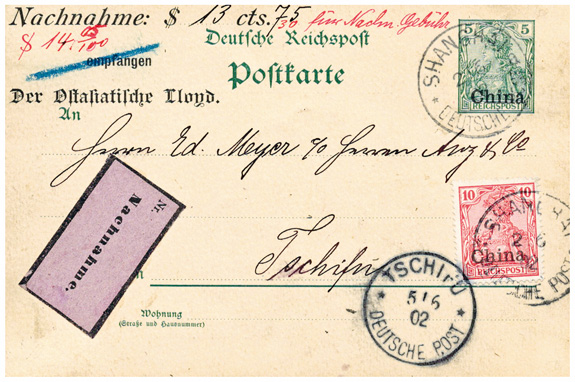 Nachnahme: $ 13 cts. 75
30 fürs Nachn. Gebühr
$ 14.05/100
empfangen
Der Ostasiatische Lloyd.
Deutsche Reichspost
Postkarte
An
Herrn Ed. Meyer c/o Herren Anz & Co
Tschifu
Nr.
Nachnahme.
Wohnung
(Straße und Hausnummer)
5 5
China
REICHSPOST
SHANGHAI
DEUTSCHE
10 10
China
REICHSPOST
SHANGHAI
DEUTSCHE POST
TSCHIFU
5/6
02
DEUTSCHE POST